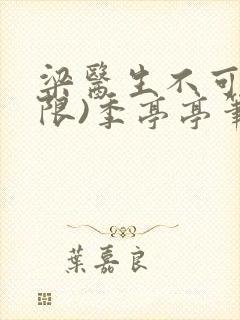 梁醫生不可
限)季亭亭
葉嘉良